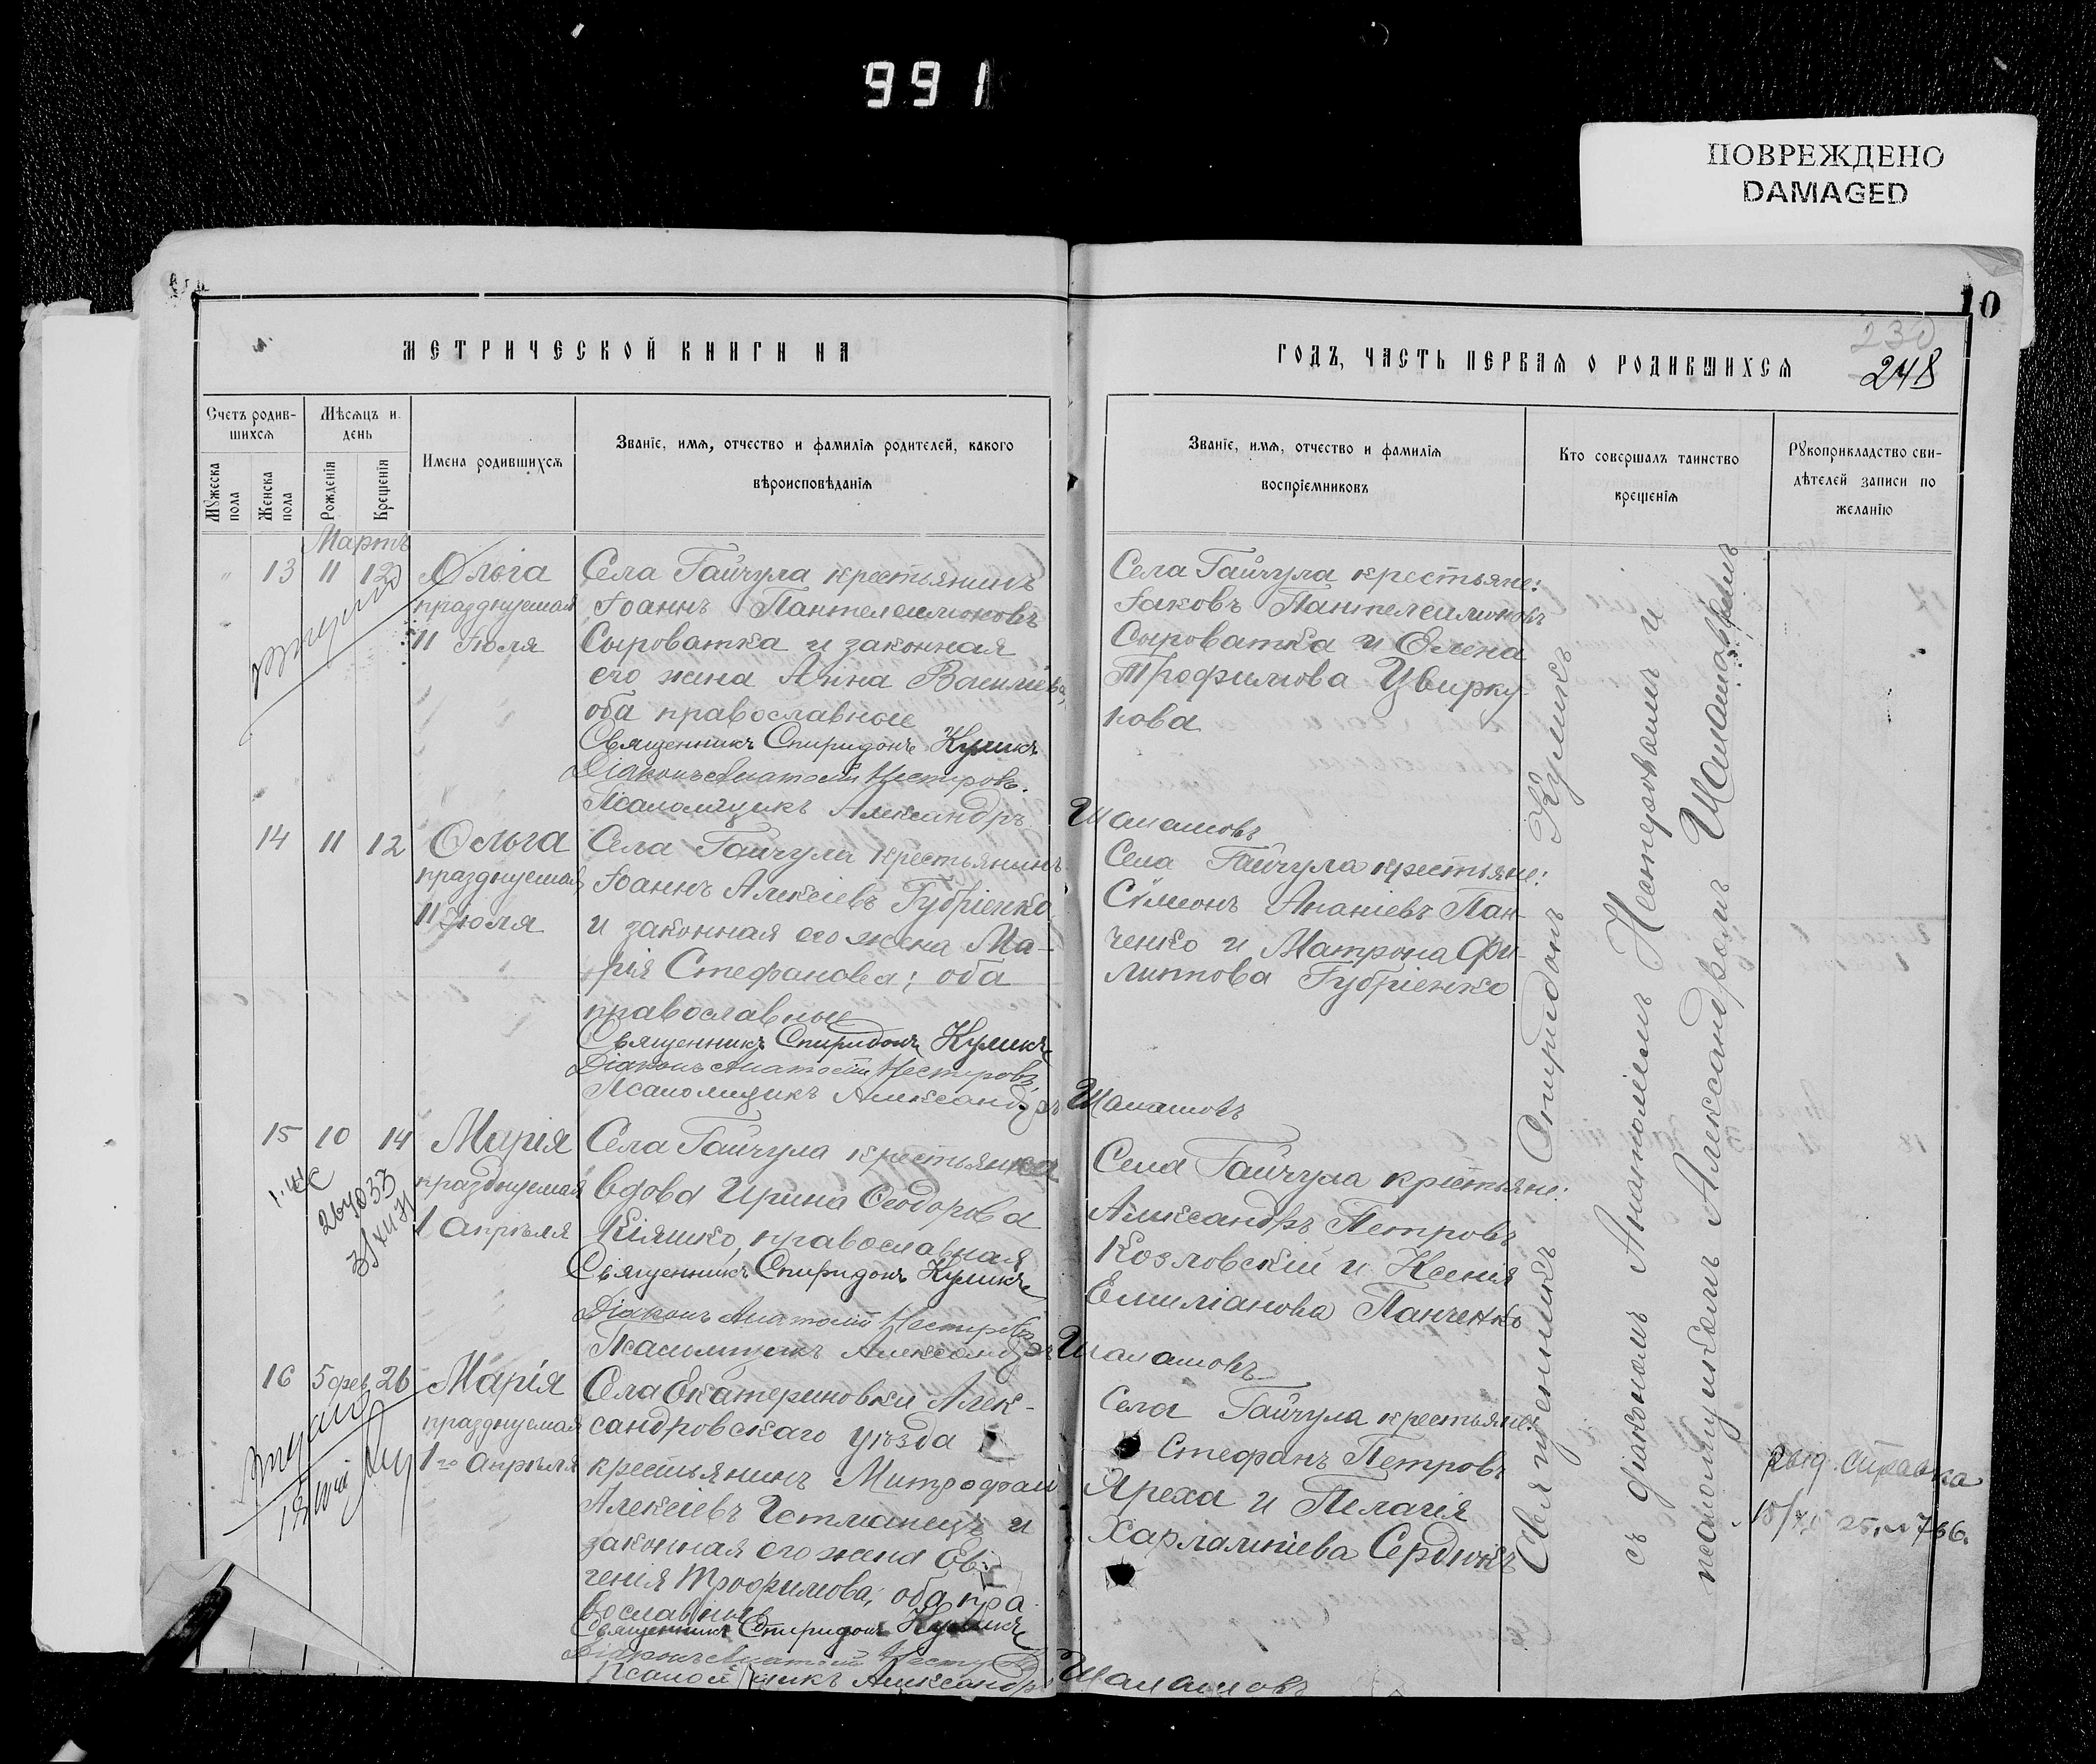 991
ПОВРЕЖДЕНО
DAMAGED
10
МЕТРИЧЕСКОЙ КНИГИ НА
ГОДЪ, ЧАСТЬ ПЕРВАЯ О РОДИВШИХСЯ
230
248
Счетъ родив-
шихся
Мужеска пола
Женска пола
Мѣсяцъ и
день
Рожденія
Крещенія
Имена родившихся
Званіе, имя, отчество и фамилія родителей, какого
вѣроисповѣданія
Званіе, имя, отчество и фамилія
воспріемниковъ
Кто совершалъ таинство
крещенія
Рукоприкладство сви-
дѣтелей записи по
желанію
Мартъ
13 11 12 Ольга
празднуемая
11 Іюля
Села Гайчула крестьянинъ
Іоаннъ Пантелеимоновъ
Сыроватка и законная
его жена Анна Василіева,
оба православные
Священникъ Спиридонъ Куликъ
Діаконъ Анатолій Нестеровъ.
Псаломщикъ Александръ Шаламовъ
Села Гайчула крестьяне:
Іаковъ Пантелеимоновъ
Сыроватка и Елена
Трофимова Цвирку-
нова
14 11 12 Ольга
празднуемая
11 Іюля
Села Гайчула крестьянинъ
Іоаннъ Алексіевъ Губріенко
и законная его жена Ма-
рія Стефанова; оба
православные
Священникъ Спиридонъ Куликъ
Діаконъ Анатолій Нестеровъ,
Псаломщикъ Александръ Шаламовъ
Села Гайчула крестьяне:
Симеонъ Ананіевъ Пан-
ченко и Матрона Фи-
липпова Губріенко
15 10 14 Марія
празднуемая
1 Апрѣля
Села Гайчула крестьянка
вдова Ирина Ѳеодорова
Кіяшко, православная
Священникъ Спиридонъ Куликъ
Діаконъ Анатолій Нестеровъ
Псаломщикъ Александръ Шаламовъ
Села Гайчула крестьяне:
Александръ Петровъ
Козловскій и Ксенія
Емиліанова Панченко
16 5 фев. 26 Марія
празднуемая
1го Апрѣля
Села Екатериновки Алек-
сандровскаго уѣзда
крестьянинъ Митрофан
Алексіевъ Гетманецъ и
законная его жена Ев-
генія Трофимова; оба пра-
вославные
Священникъ Спиридонъ Куликъ
Діаконъ Анатолій Нестеровъ
Псаломщикъ Александръ Шаламовъ
Села Гайчула крестьяне:
Стефанъ Петровъ
Яреха и Пелагія
Харлампіева Сердюкъ
Священникъ Спиридонъ Куликъ
съ діакономъ Анатоліемъ Нестеровымъ и
псаломщикомъ Александромъ Шаламовымъ
выд. справка